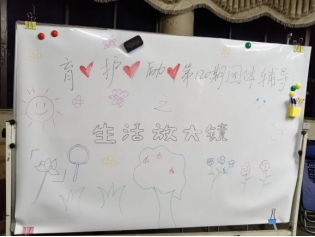 育❤护❤励❤第120期团体辅导
之
生活放大镜